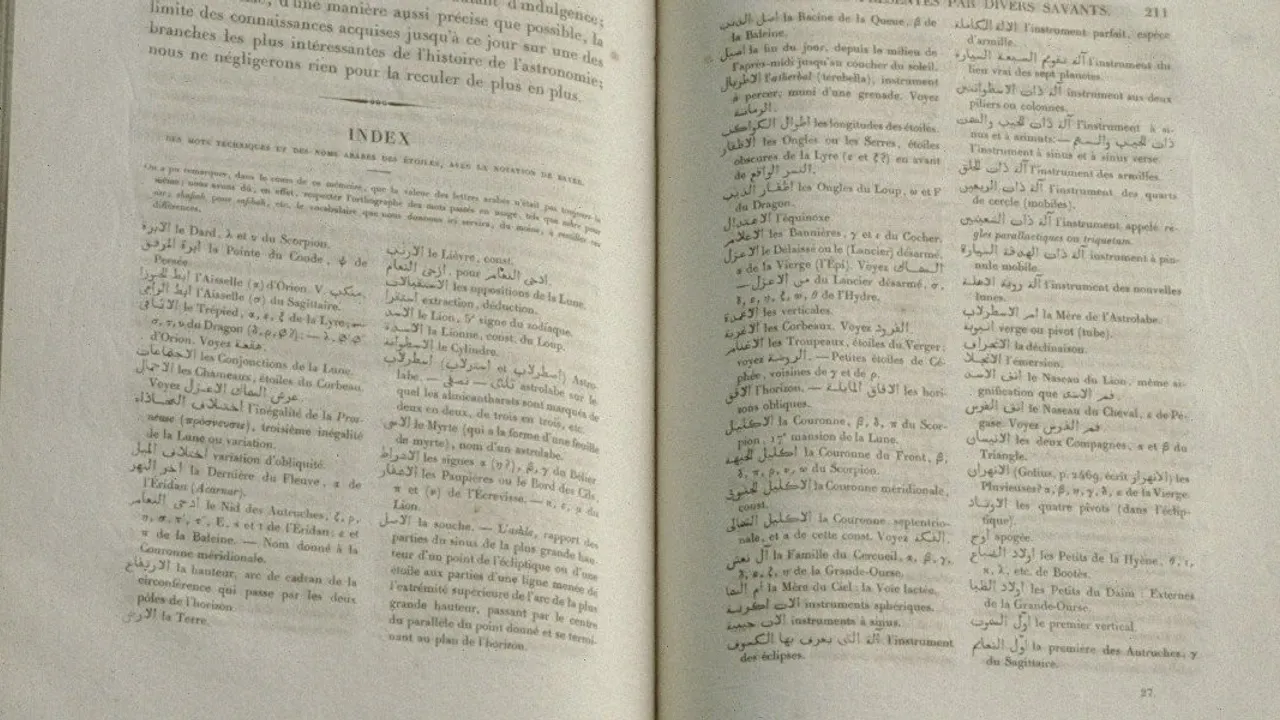 d'une manière aussi précise que possible, la
limite des connaissances acquises jusqu'à ce jour sur une des
branches les plus intéressantes de l'histoire de l'astronomie;
nous ne négligerons rien pour la reculer de plus en plus.
INDEX
DES MOTS TECHNIQUES ET DES NOMS ARABES DES ÉTOILES, AVEC LA NOTATION DE BAYER.
On a pu remarquer, dans le cours de ce mémoire, que la valeur des lettres arabes n'était pas toujours la
même; nous avons dû, en effet, respecter l'orthographe des mots passés en usage, tels que
pour etc. le vocabulaire que nous donnons ici servira, du moins, à rectifier ces
différences.
الابرة le Dard, λ et υ du Scorpion.
ابرة المرفق la Pointe du Coude, ψ de
Persée.
ابط الجوزا l'Aisselle (α) d'Orion. V. منكب.
ابط الرامى l'Aisselle (σ) du Sagittaire.
الاثافى le Trépied, α, ε, ζ de la Lyre; —
σ, τ, υ du Dragon
d'Orion. Voyez هقعة.
الاجتماعات les Conjonctions de la Lune.
الاجمال les Chameaux, étoiles du Corbeau.
Voyez عرش السماك الاعزل.
اختلاف المحاذاة l'inégalité de la Pros-
neuse (πρόσνευσις), troisième inégalité
de la Lune ou variation.
اختلاف الميل variation d'obliquité.
اخر النهر la Dernière du Fleuve, α de
l'Éridan (Acarnar).
ادحى النعام le Nid des Autruches, ζ, ρ,
de l'Éridan; ε et
π de la Baleine. — Nom donné à la
Couronne méridionale.
الارتفاع la hauteur, arc de cadran de la
circonférence qui passe par les deux
pôles de l'horizon.
الارض la Terre.
الارنب le Lièvre, const.
ازحى النعام, pour ادحى النعام.
الاستقبالات les oppositions de la Lune.
استقرا extraction, déduction.
الاسد le Lion, 5e signe du zodiaque.
الاسدة la Lionne, const. du Loup.
الاسطوانة le Cylindre.
اسطرلاب (اسطرلاب et اصترلاب) Astro-
labe. — ثلثى — نصفى astrolabe sur le
quel les almicantharats sont marqués de
deux en deux, de trois en trois, etc.
الاسى le Myrte (qui a la forme d'une feuille
de myrte), nom d'un astrolabe.
الاشراط les signes α (η?), β, γ du Bélier
الاشفار les Paupières ou le Bord des Cils,
π et (ν) de l'Écrevisse. — κ, ε, μ du
Lion.
الاصل la souche. — L'achle, rapport des
parties du sinus de la plus grande hau-
teur d'un point de l'écliptique ou d'une
étoile aux parties d'une ligne menée de
l'extrémité supérieure de l'arc de la plus
grande hauteur, passant par le centre
du parallèle du point donné et se termi-
nant au plan de l'horizon.
PRÉSENTÉS PAR DIVERS SAVANTS. 211
اصل الذنب la Racine de la Queue, β de
la Baleine.
اصيل la fin du jour, depuis le milieu de
l'après-midi jusqu'au coucher du soleil.
الاطربال l'atherbal (terebella), instrument
à percer, muni d'une grenade. Voyez
الرمانة.
اطوال الكواكب les longitudes des étoiles.
الاظفار les Ongles ou les Serres, étoiles
obscures de la Lyre (ε et ζ?) en avant
de النسر الواقع.
اظفار الذيب les Ongles du Loup, ω et F
du Dragon.
الاعتدال l'équinoxe
الاعلام les Bannières, γ et ε du Cocher.
الاعزل le Délaissé ou le (Lancier) désarmé,
α de la Vierge (l'Épi). Voyez السماك
— من الاعزل du Lancier désarmé, σ,
θ de l'Hydre.
الاعمدة les verticales.
الاغربة les Corbeaux. Voyez القرود.
الاغنام les Troupeaux, étoiles du Verger;
voyez الروضة. — Petites étoiles de Cé-
phée, voisines de γ et de ρ.
الافق l'horizon. — الافاق المايلة les hori-
sons obliques.
الاكليل la Couronne, β, δ, π du Scor-
pion, 17e mansion de la Lune.
اكليل الجبهة la Couronne du Front, β,
δ, π, ρ, ν, ω du Scorpion.
الاكليل الجنوبى la Couronne méridionale,
const.
الاكليل الشمالى la Couronne septentrio-
nale, et α de cette const. Voyez الفكة.
آل نعش la Famille du Cercueil, α, β, γ,
δ, ε, ζ, υ de la Grande-Ourse.
ام السما la Mère du Ciel: la Voie lactée.
الات اكرية instruments sphériques.
الات جيبية instruments à sinus.
آلة التى يعرف بها الكسوف l'instrument
des éclipses.
الالة الكاملة l'instrument parfait, espèce
d'armille.
آلة تقويم السبعة السيارة l'instrument du
lieu vrai des sept planètes.
آلة ذات الاسطوانتين instrument aux deux
piliers ou colonnes.
آلة ذات الجيب والسمت l'instrument à si-
nus et à azimuts; — ذات الجيب والسهم
l'instrument à sinus et à sinus verse.
آلة ذات الحلق l'instrument des armilles.
آلة ذات الربعين l'instrument des quarts
de cercle (mobiles).
آلة ذات الشعبتين l'instrument appelé rè-
gles parallactiques ou triquetum.
آلة ذات الهدفة السيارة instrument à pin-
nule mobile.
آلة روية الاهلة l'instrument des nouvelles
lunes.
ام الاسطرلاب la Mère de l'Astrolabe.
انبوبة verge ou pivot (tube).
الانحراف la déclinaison.
الانجلا l'émersion.
انف الاسد le Naseau du Lion, même si-
gnification que فم الاسد.
انف الفرس le Naseau du Cheval, ε de Pé-
gase. Voyez فم الفرس.
الانيسان les deux Compagnes, α et β du
Triangle.
الانهران (Golius, p. 2469, écrit الانهرار) les
Pluvieuses? α, β, υ, γ, δ, ε de la Vierge.
الاوتاد les quatre pivots (dans l'éclip-
tique).
اوج apogée.
اولاد الضباع les Petits de la Hyène, θ, ι,
κ, λ, etc. de Bootès.
اولاد الظبا les Petits du Daim: Externes
de la Grande-Ourse.
اول السموت le premier vertical.
اول النعام la première des Autruches, γ
du Sagittaire.
27